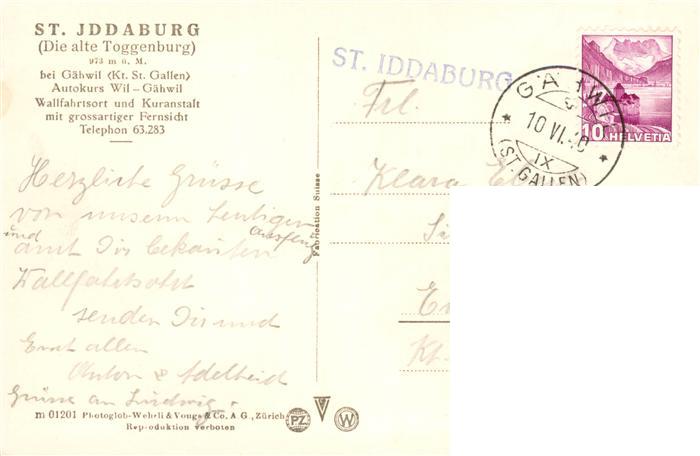 ST. JDDABURG
(Die alte Toggenburg)
973 m ü. M.
bei Gähwil (Kt. St. Gallen)
Autokurs Wil – Gähwil
Wallfahrtsort und Kuranstalt
mit grossartiger Fernsicht
Telephon 63.283
Herzliche Grüsse
von unserm heutigen
Ausflug
und
amt Dir bekanten
Wallfahrtsort
senden Dir und
Euch allen
Anton & Adelheid
Grüsse an Ludwig.
m 01201 Photoglob-Wehrli & Vouga & Co. A G., Zürich
Reproduktion verboten
Fabrication Suisse
PZ
W
ST. IDDABURG
Frl.
Klara
Kt.
GÄHWIL
10 VI. 40
IX
(ST. GALLEN)
10 HELVETIA